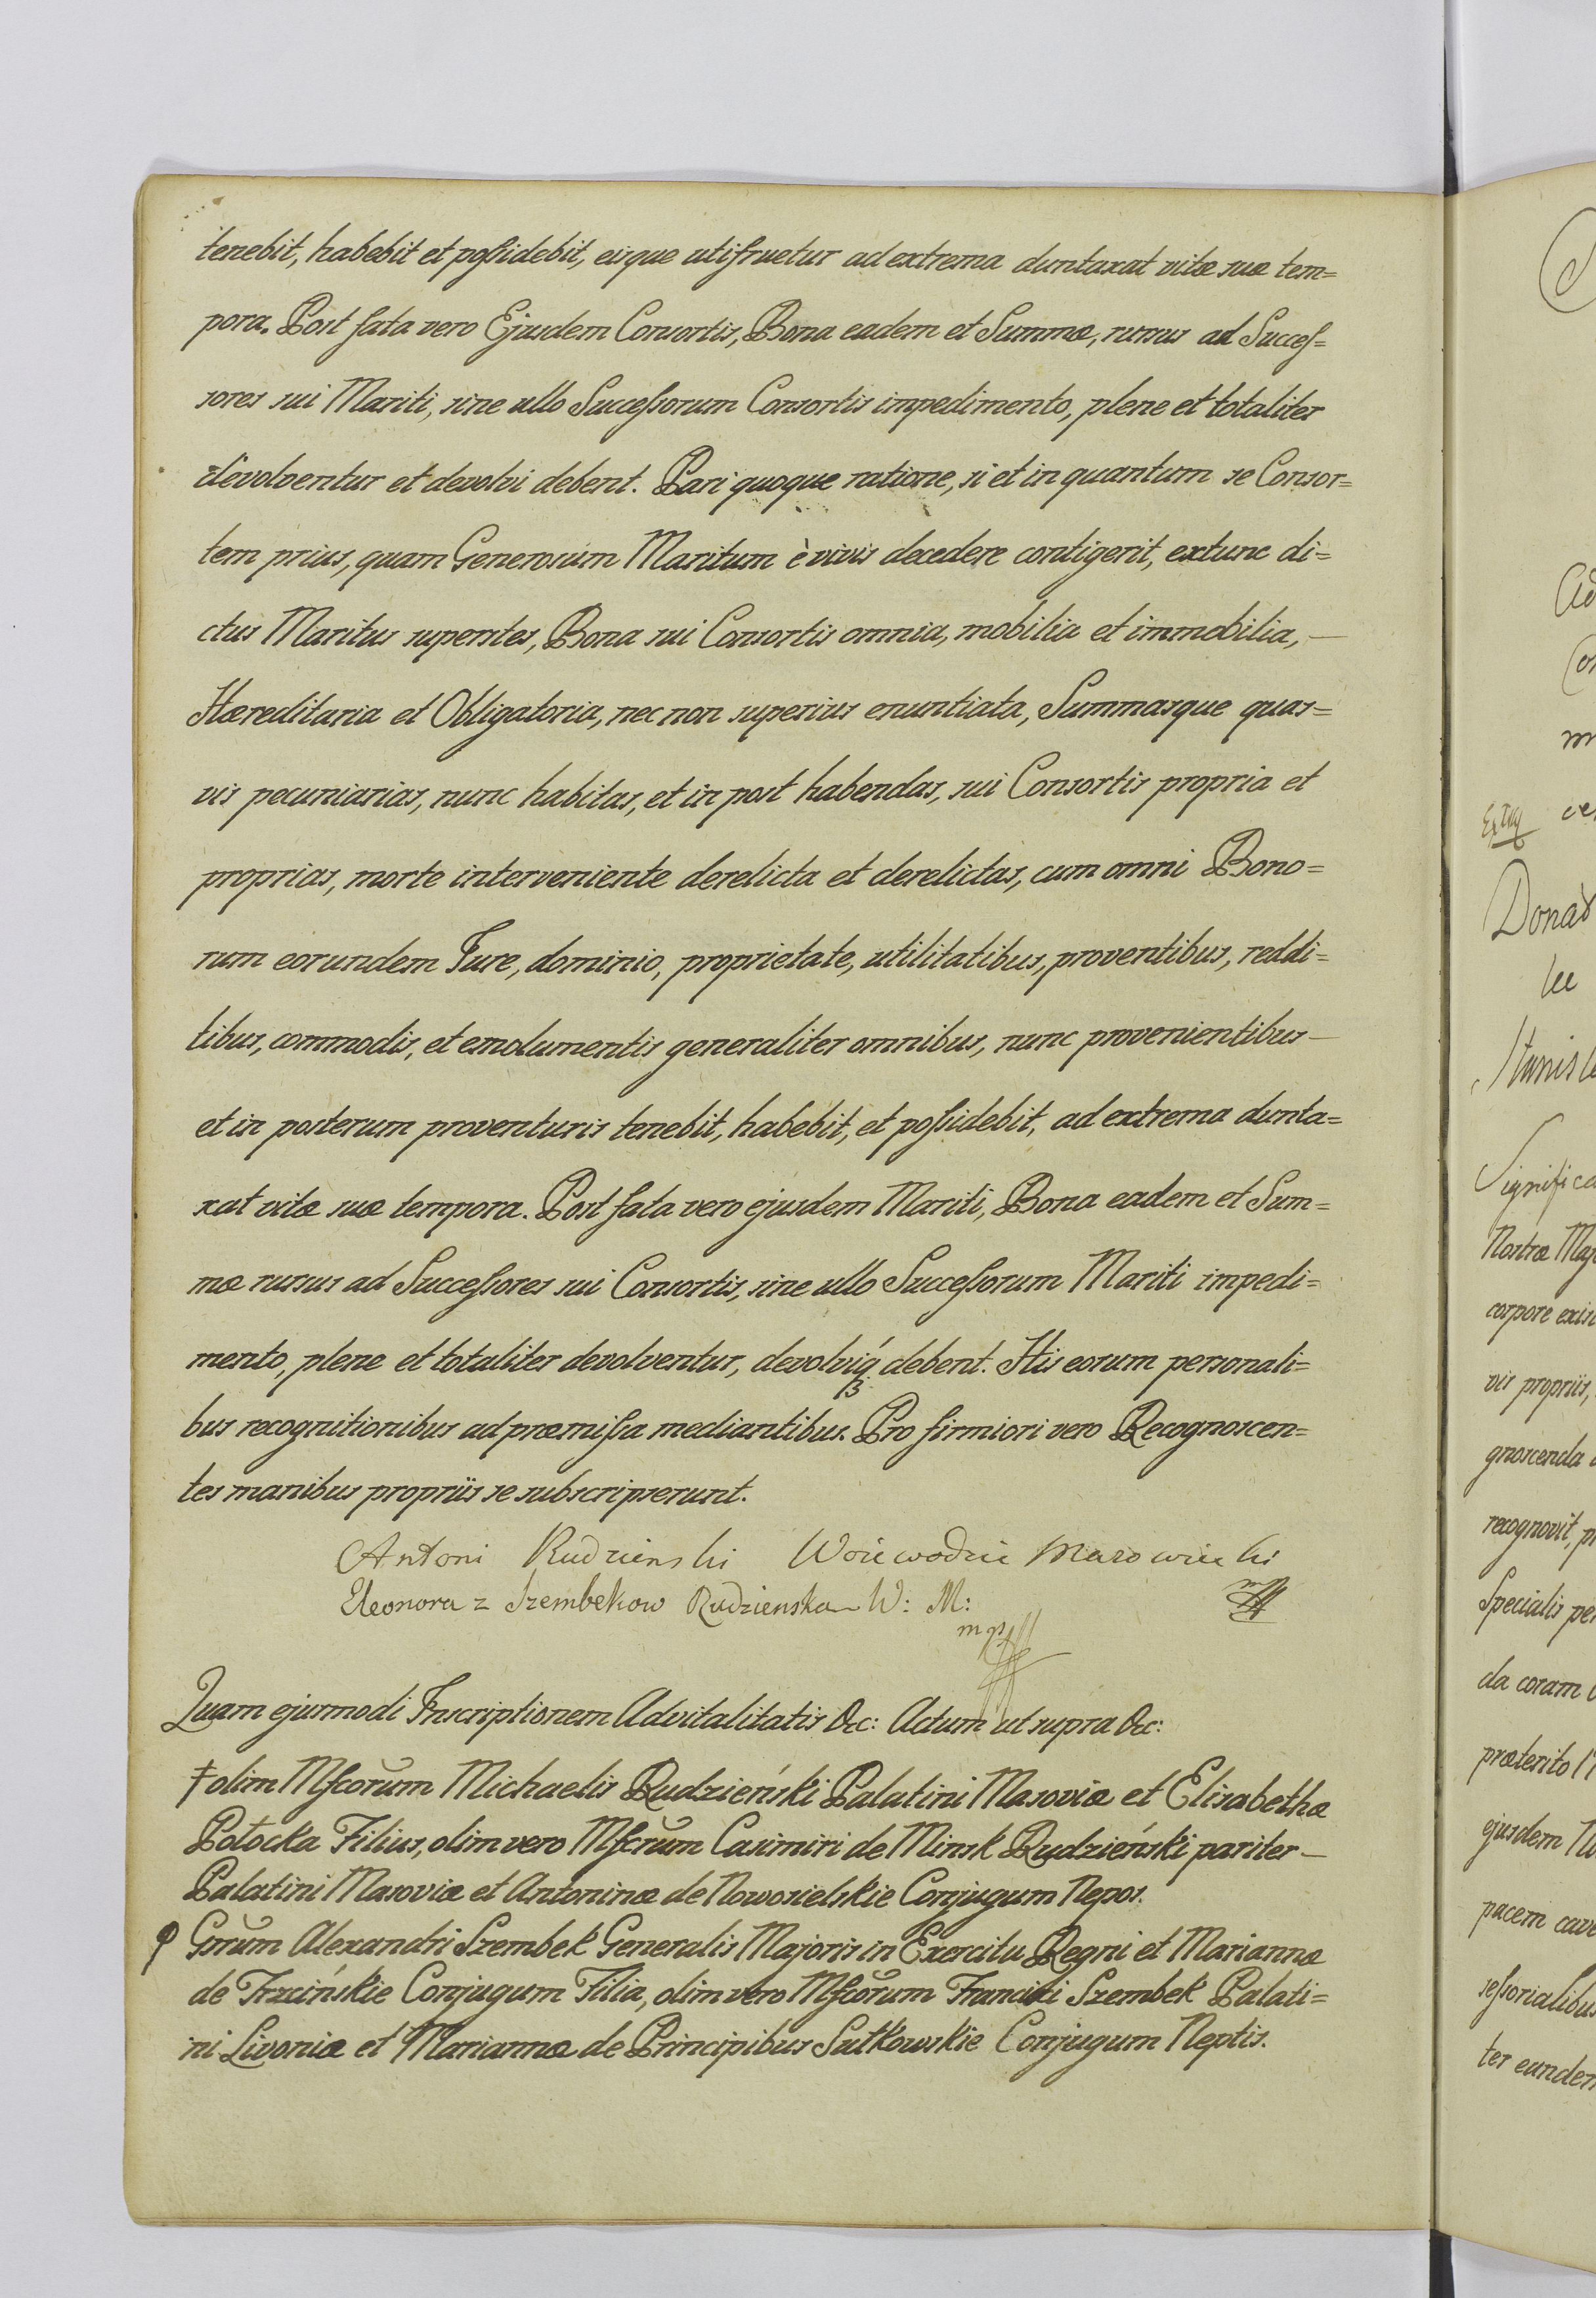 tenebit, habebit et possidebit, eisque utifruetur ad extrema duntaxat vitæ suæ tem=
pora. Post fata vero Ejusdem Consortis, Bona eadem et Summæ, rursus ad Succes=
sores sui Mariti, sine ullo Successorum Consortis impedimento, plene et totaliter
devolventur et devolvi debent. Pari quoque ratione, si et in quantum se Consor=
tem prius, quam Generosum Maritum è vivis decedere contigerit, extunc di=
ctus Maritus superstes, Bona sui Consortis omnia, mobilia et immobilia, —
Hæreditaria et Obligatoria, nec non superius enuntiata, Summasque quas=
vis pecuniarias, nunc habitas, et in post habendas, sui Consortis propria et
proprias, morte interveniente derelicta et derelictas, cum omni Bono=
rum eorundem Jure, dominio, proprietate, utilitatibus, proventibus, reddi=
tibus, commodis, et emolumentis generaliter omnibus, nunc provenientibus —
et in posterum proventuris tenebit, habebit, et possidebit, ad extrema dunta=
xat vitæ suæ tempora. Post fata vero ejusdem Mariti, Bona eadem et Sum=
mæ rursus ad Successores sui Consortis, sine ullo Successorum Mariti impedi=
mento, plene et totaliter devolventur, devolviq́ꝫ debent. His eorum personali=
bus recognitionibus ad præmissa mediantibus. Pro firmiori vero Recognoscen=
tes manibus propriis se subscripserunt.
Antoni Rudzienski Woiewodzic Mazowiecki
Eleonora z Szembekow Rudzienska W: M:
mp
Quam ejusmodi Inscriptionem Advitalitatis &c: Actum ut supra &c:
‡ olim Mfcorum Michaelis Rudzieński Palatini Masoviæ et Elisabethæ
Potocka Filius, olim vero Mfcrum Casimiri de Minsk Rudzieński pariter —
Palatini Masoviæ et Antoninæ de Nowosielskie Conjugum Nepos.
φ Gsrum Alexandri Szembek Generalis Majoris in Exercitu Regni et Mariannæ
de Trzcińskie Conjugum Filia, olim vero Mfcorum Francisci Szembek Palati=
ni Livoniæ et Mariannæ de Principibus Sułkowskie Conjugum Neptis.